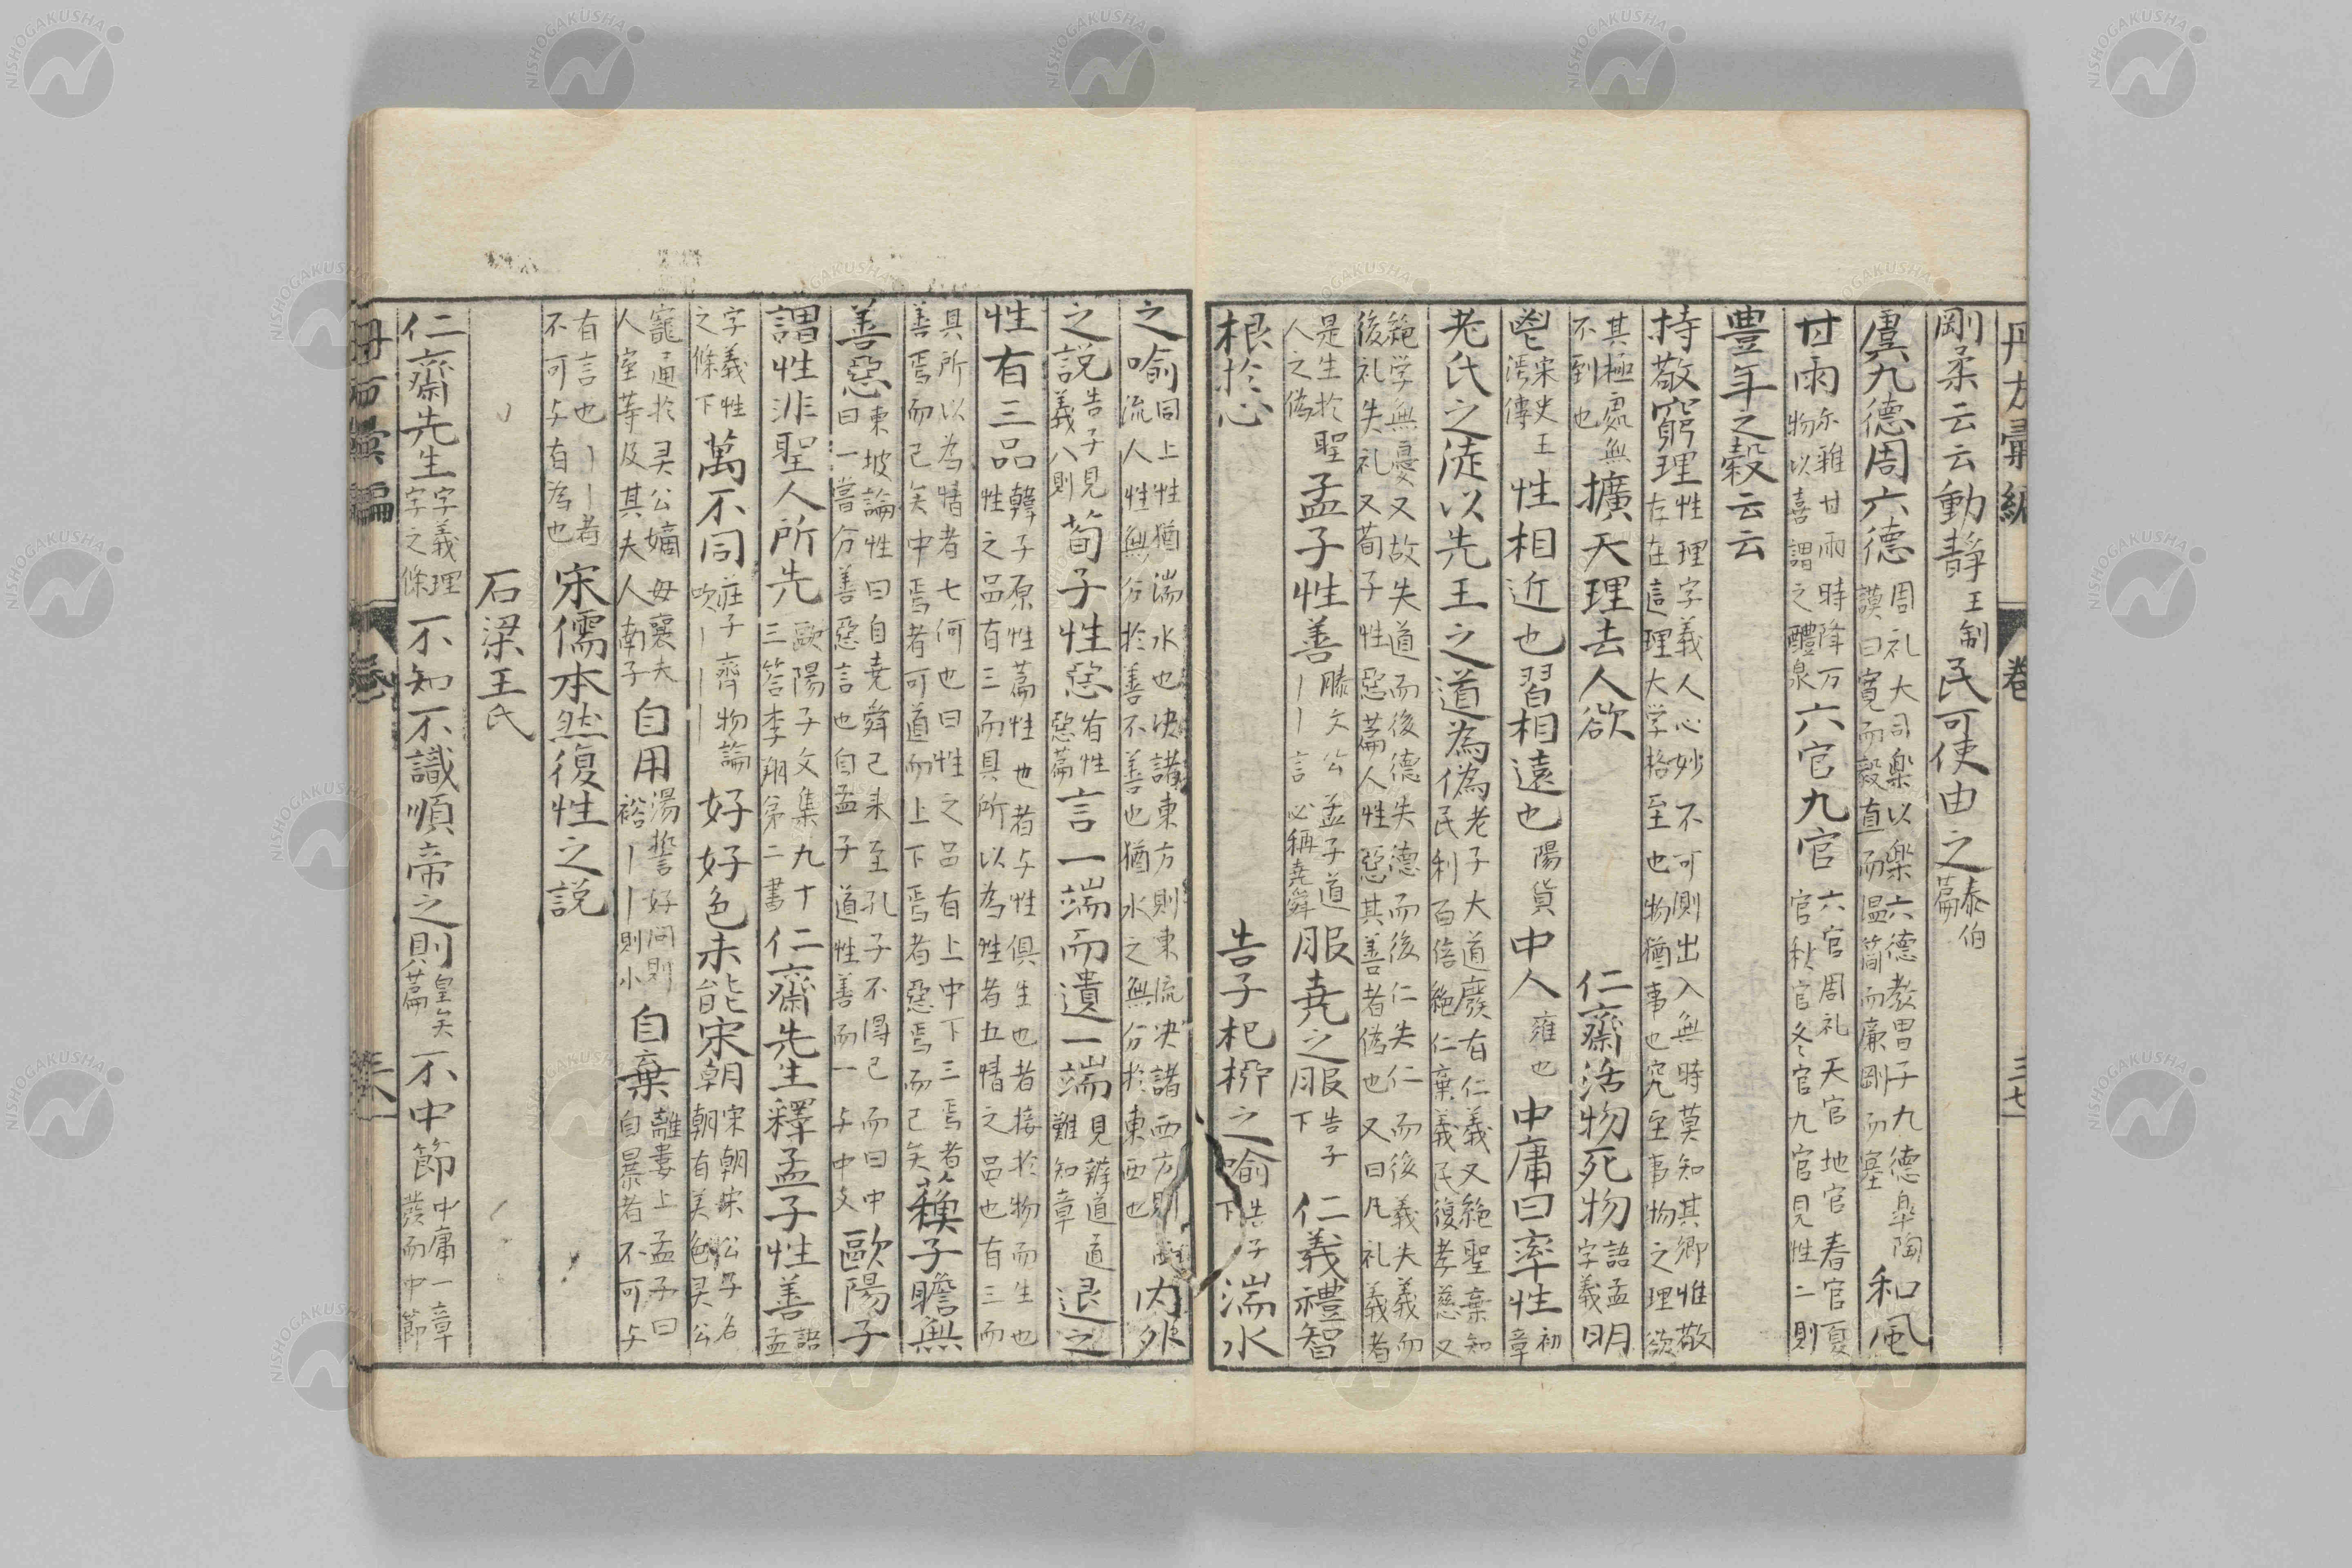 剛柔云云動静王制民可使由之泰伯篇
虞九德周六德周礼大司樂以樂六德教冑子九德皐陶謨曰寛而栗直而温簡而廉剛而塞和風
甘雨尓雅甘雨時降万物以喜謂之醴泉六官九官六官周礼天官地官春官夏官秋官冬官九官見性二則
豊年之穀云云
持敬窮理性理字義人心妙不可測出入無時莫知其郷惟敬存在這理大学格至也物猶事也究至事物之理欲
其極処無不到也擴天理去人欲 仁齋活物死物語孟字義明
鬯宋史王淓傳性相近也習相遠也陽貨中人雍也中庸曰率性初章
老氏之徒以先王之道為偽老子大道廢有仁義又絶聖棄知民利百倍絶仁棄義民復孝慈又
絶学無憂又故失道而後德失德而後仁失仁而後義失義而後礼失礼又荀子性惡篇人性惡其善者偽也又曰凡礼義者
是生於聖人之偽孟子性善滕文公孟子道丨丨言必稱堯舜服堯之服告子下仁義禮智
根於心 告子杞柳之喻告子下湍水
之喻同上性猶湍水也决諸東方則東流决諸西方則西流人性無分於善不善也猶水之無分於東西也内外
之説告子見義八則荀子性惡有性惡篇言一端而遺一端見辨道道難知章退之
性有三品韓子原性篇性也者与性俱生也者接於物而生也性之品有三而其所以為性者五情之品也有三而
其所以為情者七何也曰性之品有上中下三焉者善焉而已矣中焉者可道而上下焉者惡焉而已矣蘓子瞻無
善惡東坡論性曰自堯舜已来至孔子不得已而曰中曰一嘗分善惡言也自孟子道性善而一与中支歐陽子
謂性非聖人所先歐陽子文集九十三答李翔第二書仁齋先生釋孟子性善語孟
字義性之條下萬不同莊子齊物論吹丨丨丨好好色未能宋朝宋朝宋公子名朝有美色灵公
寵通於灵公嫡母襄夫人室等及其夫人南子自用湯誓好問則裕丨丨則小自棄離婁上孟子曰自暴者不可与
有言也丨丨者不可与有為也宋儒本然復性之説
石梁王氏
仁齋先生字義理字之條不知不識順帝之則皇矣篇不中節中庸一章發而中節